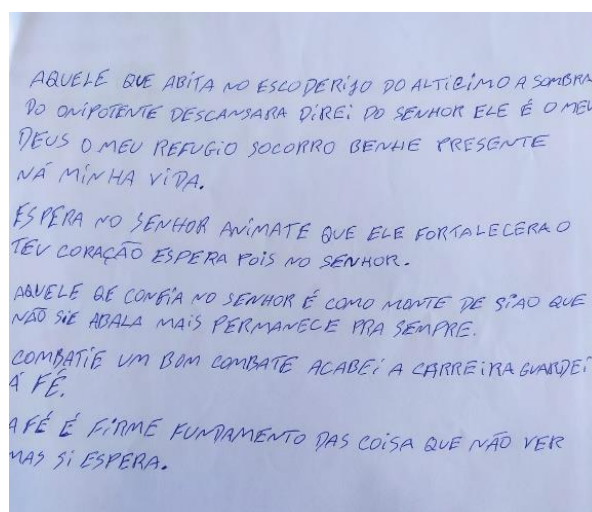 AQUELE QUE ABITA NO ESCODERIJO DO ALTICIMO A SOMBRA
DO ONIPOTENTE DESCANSARA DIREI DO SENHOR ELE É O MEU
DEUS O MEU REFUGIO SOCORRO BENHE PRESENTE
NÁ MINHA VIDA.
ESPERA NO SENHOR ANIMATE QUE ELE FORTALECERA O
TEU CORAÇÃO ESPERA POIS NO SENHOR.
AQUELE QE CONFIA NO SENHOR É COMO MONTE DE SIAO QUE
NÃO SIE ABALA MAIS PERMANECE PRA SEMPRE.
COMBATIE UM BOM COMBATE ACABEI A CARREIRA GUARDEI
Á FÉ.
A FÉ É FIRME FUNDAMENTO DAS COISA QUE NÃO VER
MAS SI ESPERA.